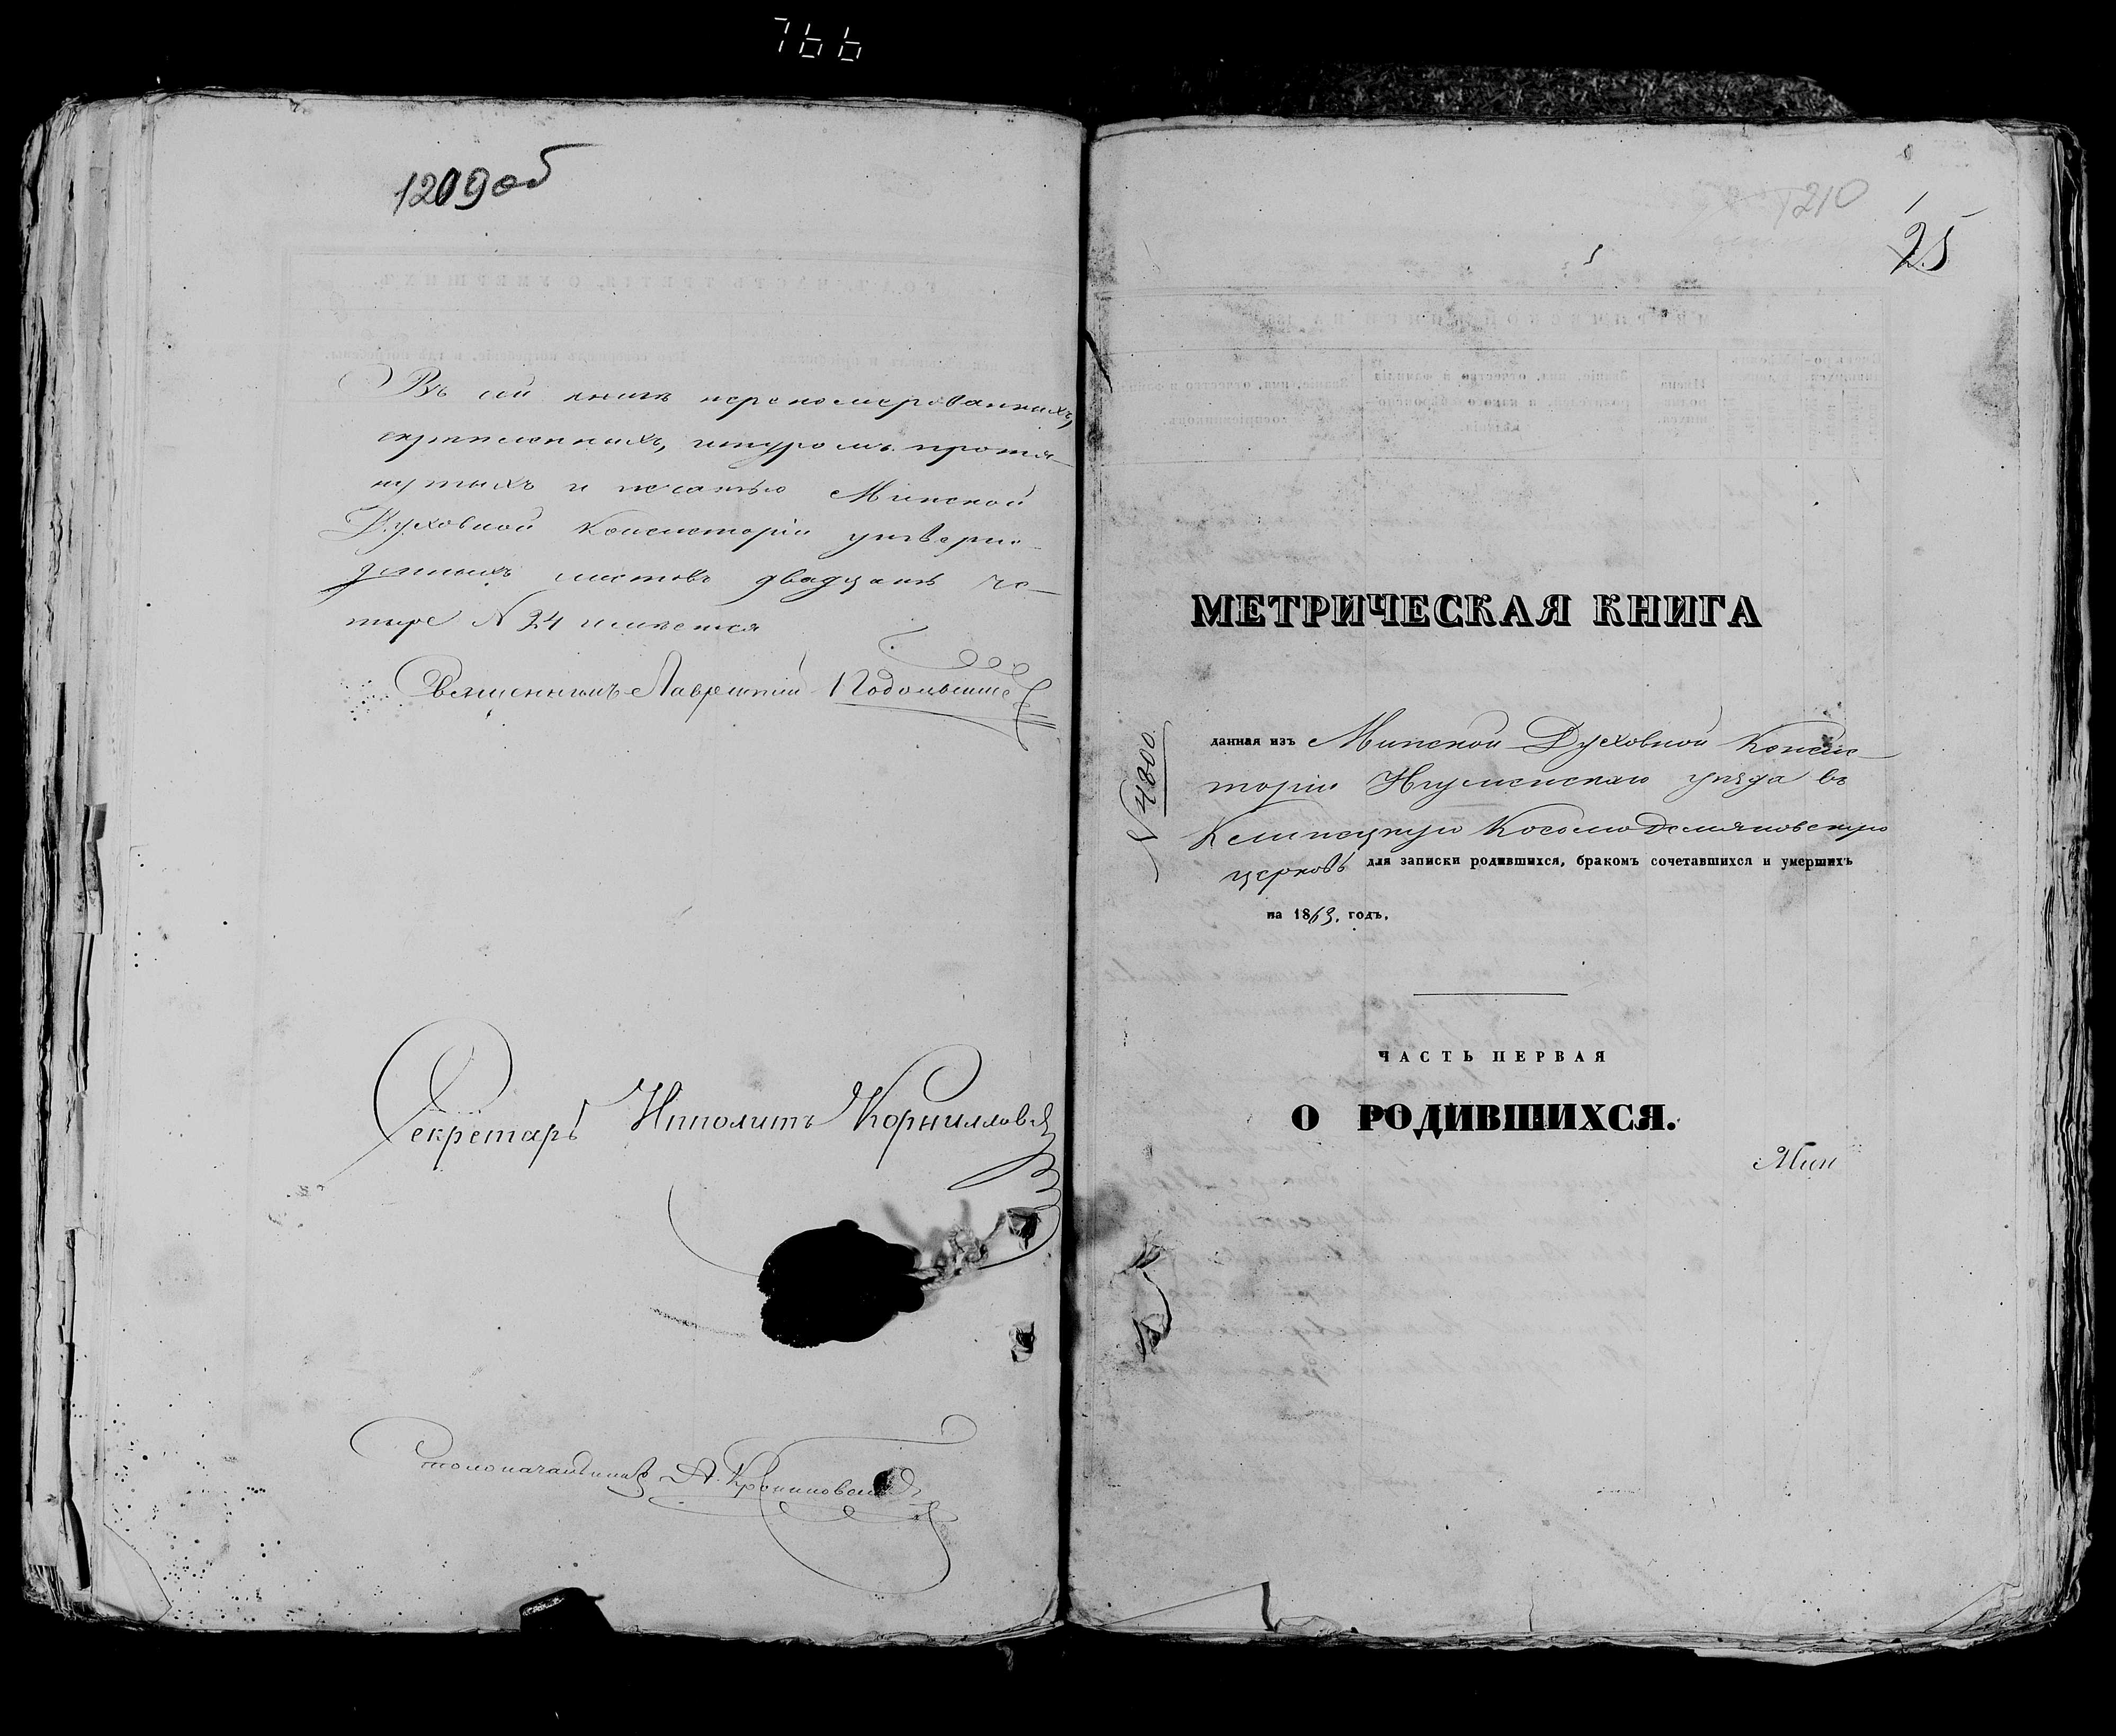 766
1209 об
Въ сей книгѣ перенумерованныхъ,
скрѣпленныхъ, шнуромъ протя-
нутыхъ и печатью Минской
Духовной Консисторіи утверж-
денныхъ листовъ двадцать че-
тыре N 24 имѣется
Священникъ Лаврентій
Секретарь Ипполитъ
Столоначальникъ А.
1210
1
25
МЕТРИЧЕСКАЯ КНИГА
N 4800
данная изъ Минской Духовной Консис-
торіи Игуменскаго уѣзда въ
Космо Демьяновскую
церковь для записки родившихся, бракомъ сочетавшихся и умершихъ
на 1863. годъ.
ЧАСТЬ ПЕРВАЯ
О РОДИВШИХСЯ.
Мин